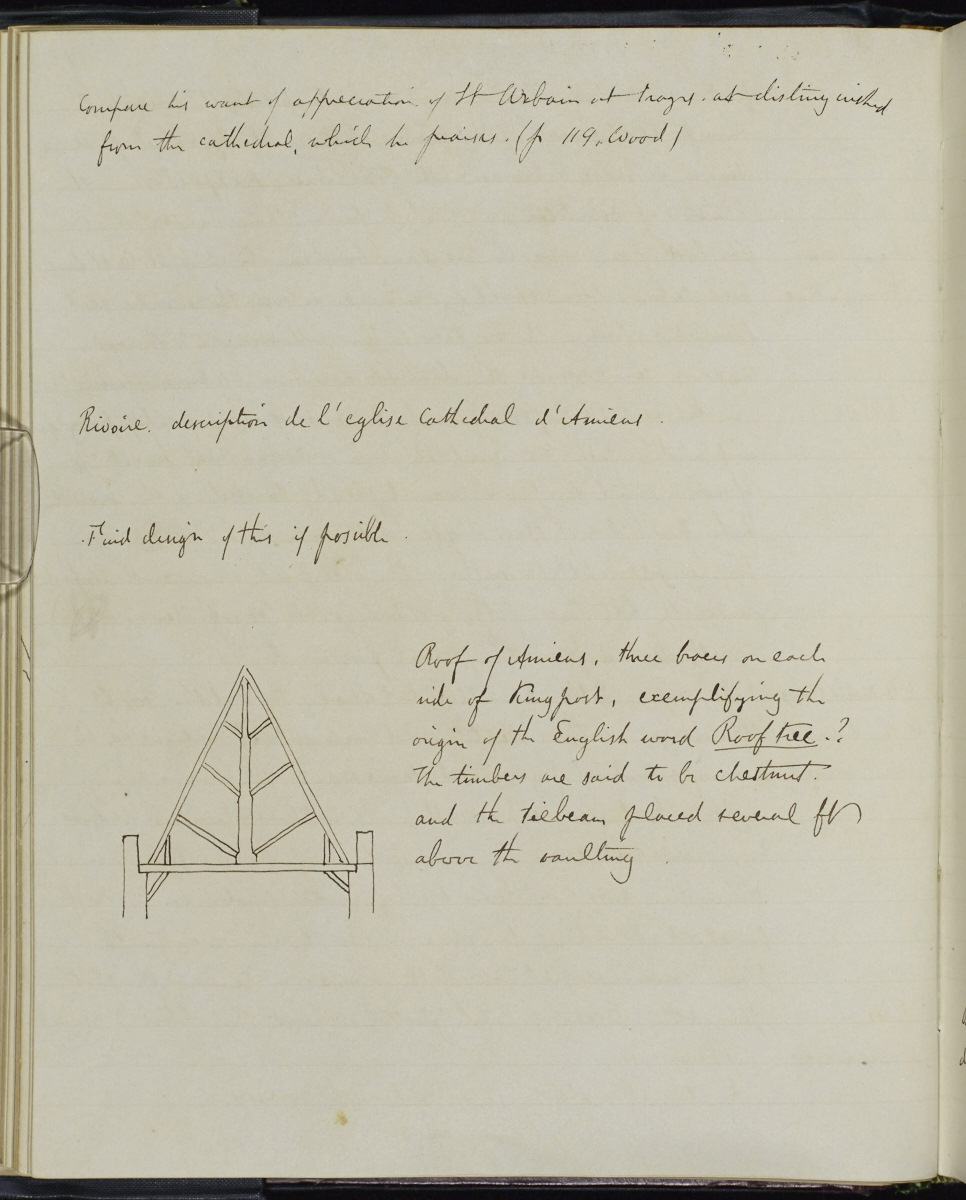 Compare his want of appreciation of St Urbain at Troyes. as distinguished
from the cathedral, which he praises. (p 119. Wood)
Rivoire. description de l'eglise Cathedral d'Amiens.
Find design of this if possible.
Roof of Amiens, three braces on each
side of Kingpost, exemplifying the
origin of the English word Roof tree.?
the timbers are said to be chestnut.
and the tiebeam placed several ft
above the vaulting